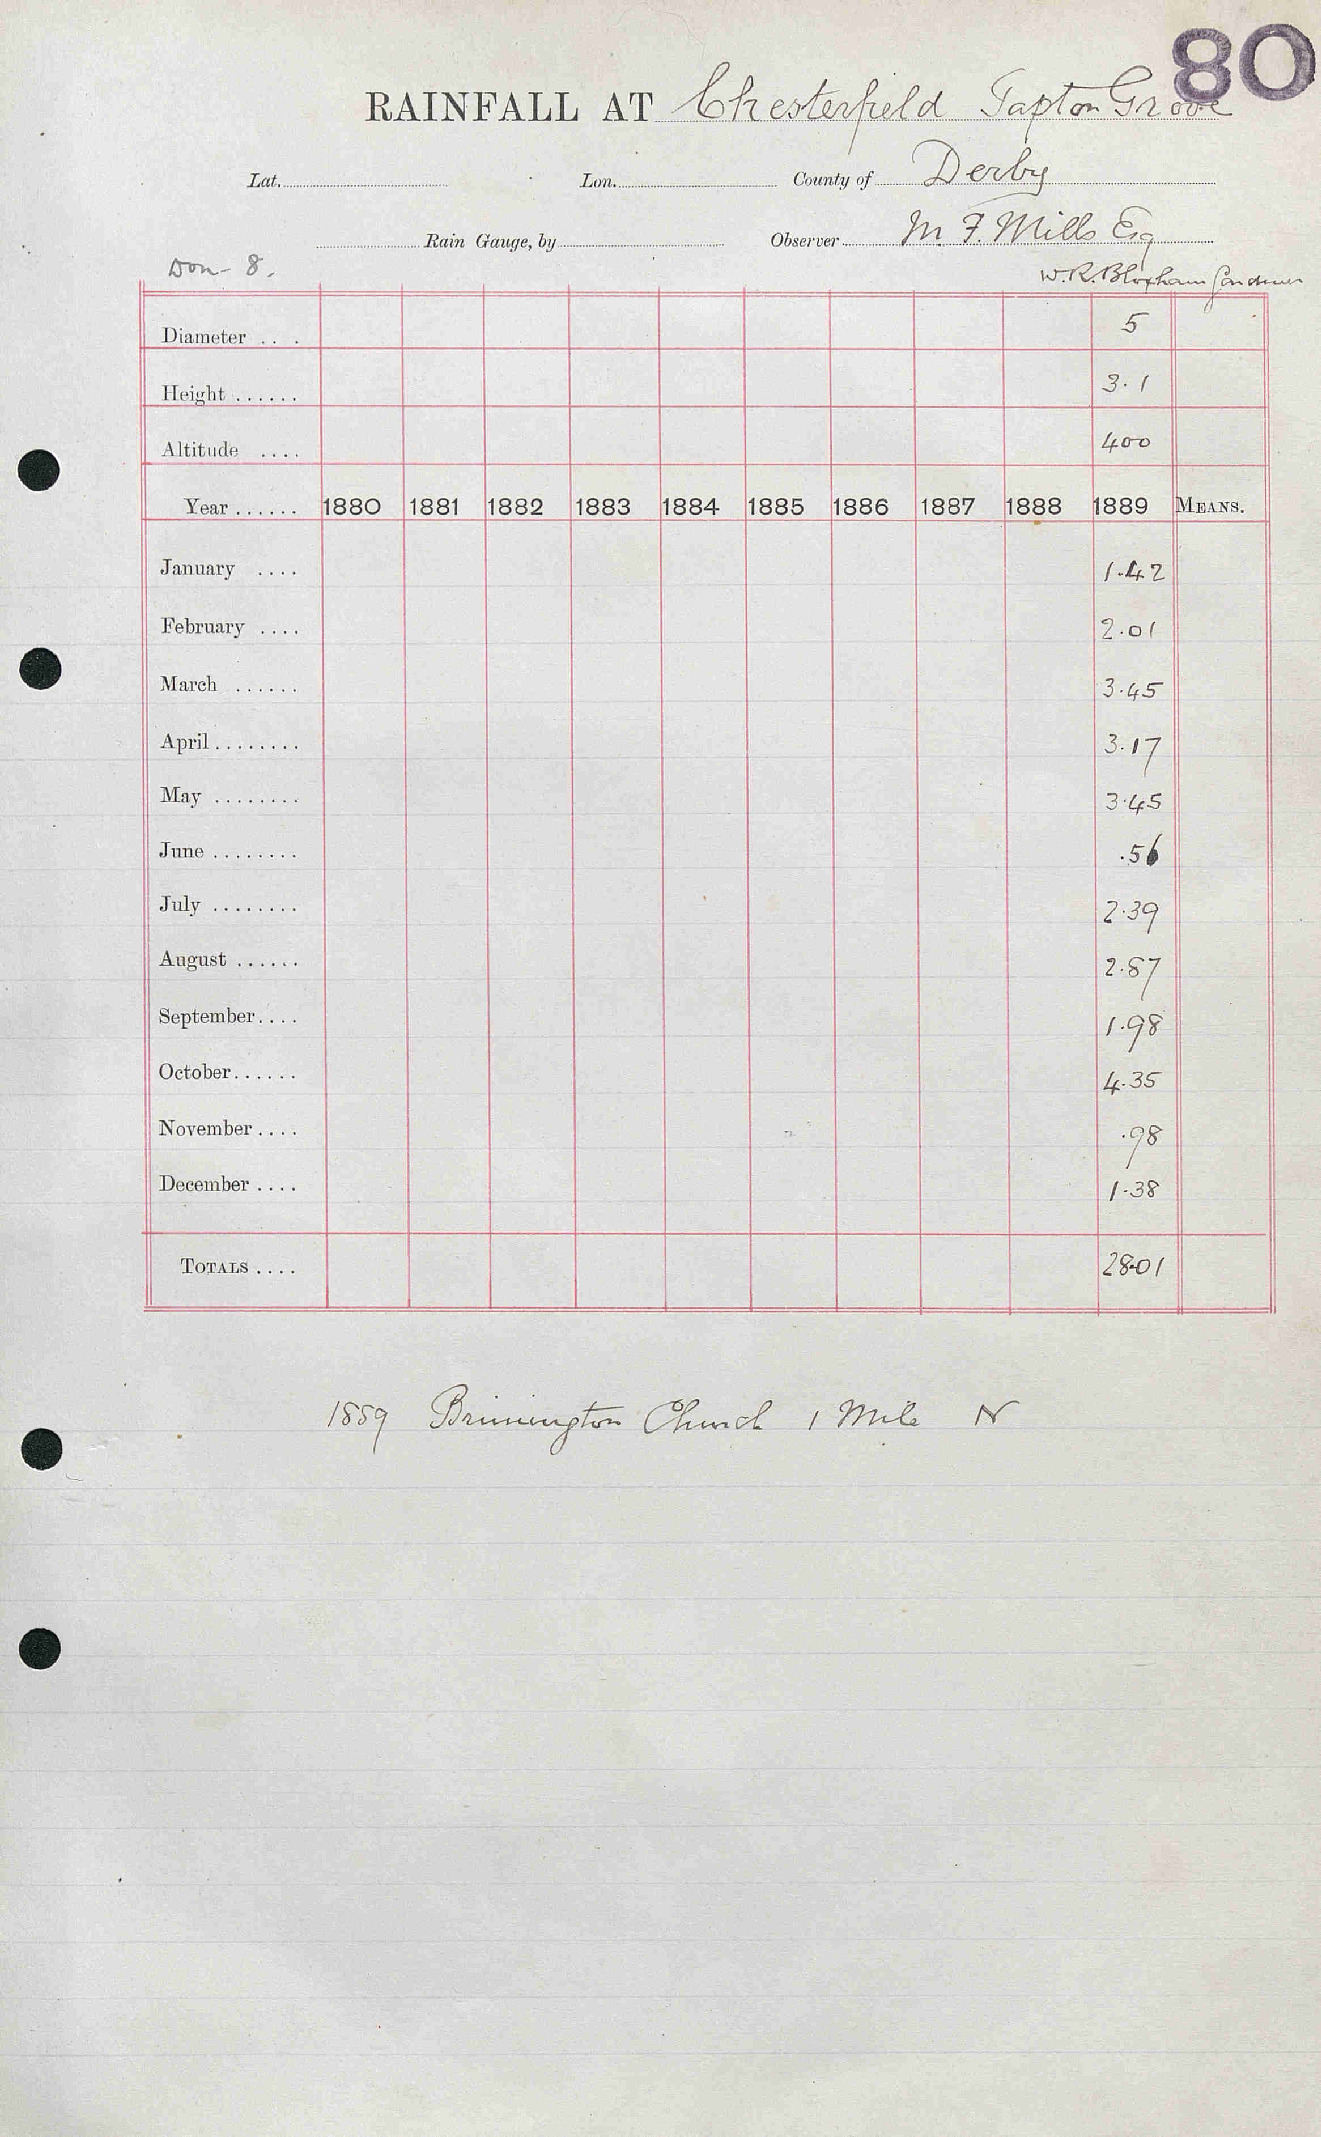 80
RAINFALL AT Chesterfield Tapton Grove
Lat. Lon. County of Derby
Rain Gauge, by Observer M. F. Mills Esq
Don - 8. W. R. Bloxham Gardener
Diameter .... 5
Height ...... 3.1
Altitude .... 400
Year ...... 1880 1881 1882 1883 1884 1885 1886 1887 1888 1889 MEANS.
January .... 1.42
February .... 2.01
March ...... 3.45
April........ 3.17
May ........ 3.45
June ........ .56
July ........ 2.39
August ...... 2.87
September.... 1.98
October...... 4.35
November.... .98
December.... 1.38
TOTALS.... 28.01
1889 Brimington Church 1 Mile N